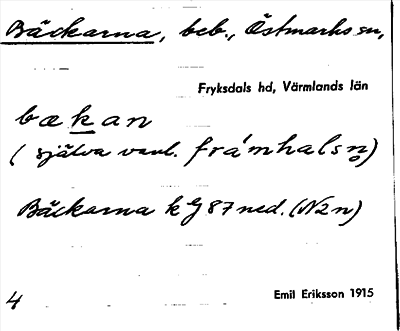 Bäckarna, beb., Östmarks sn,
Fryksdals hd, Värmlands län
bækan
(själva vanl. frámhalsn̥)
Bäckarna k G 87 ned. (N2n)
4
Emil Eriksson 1915